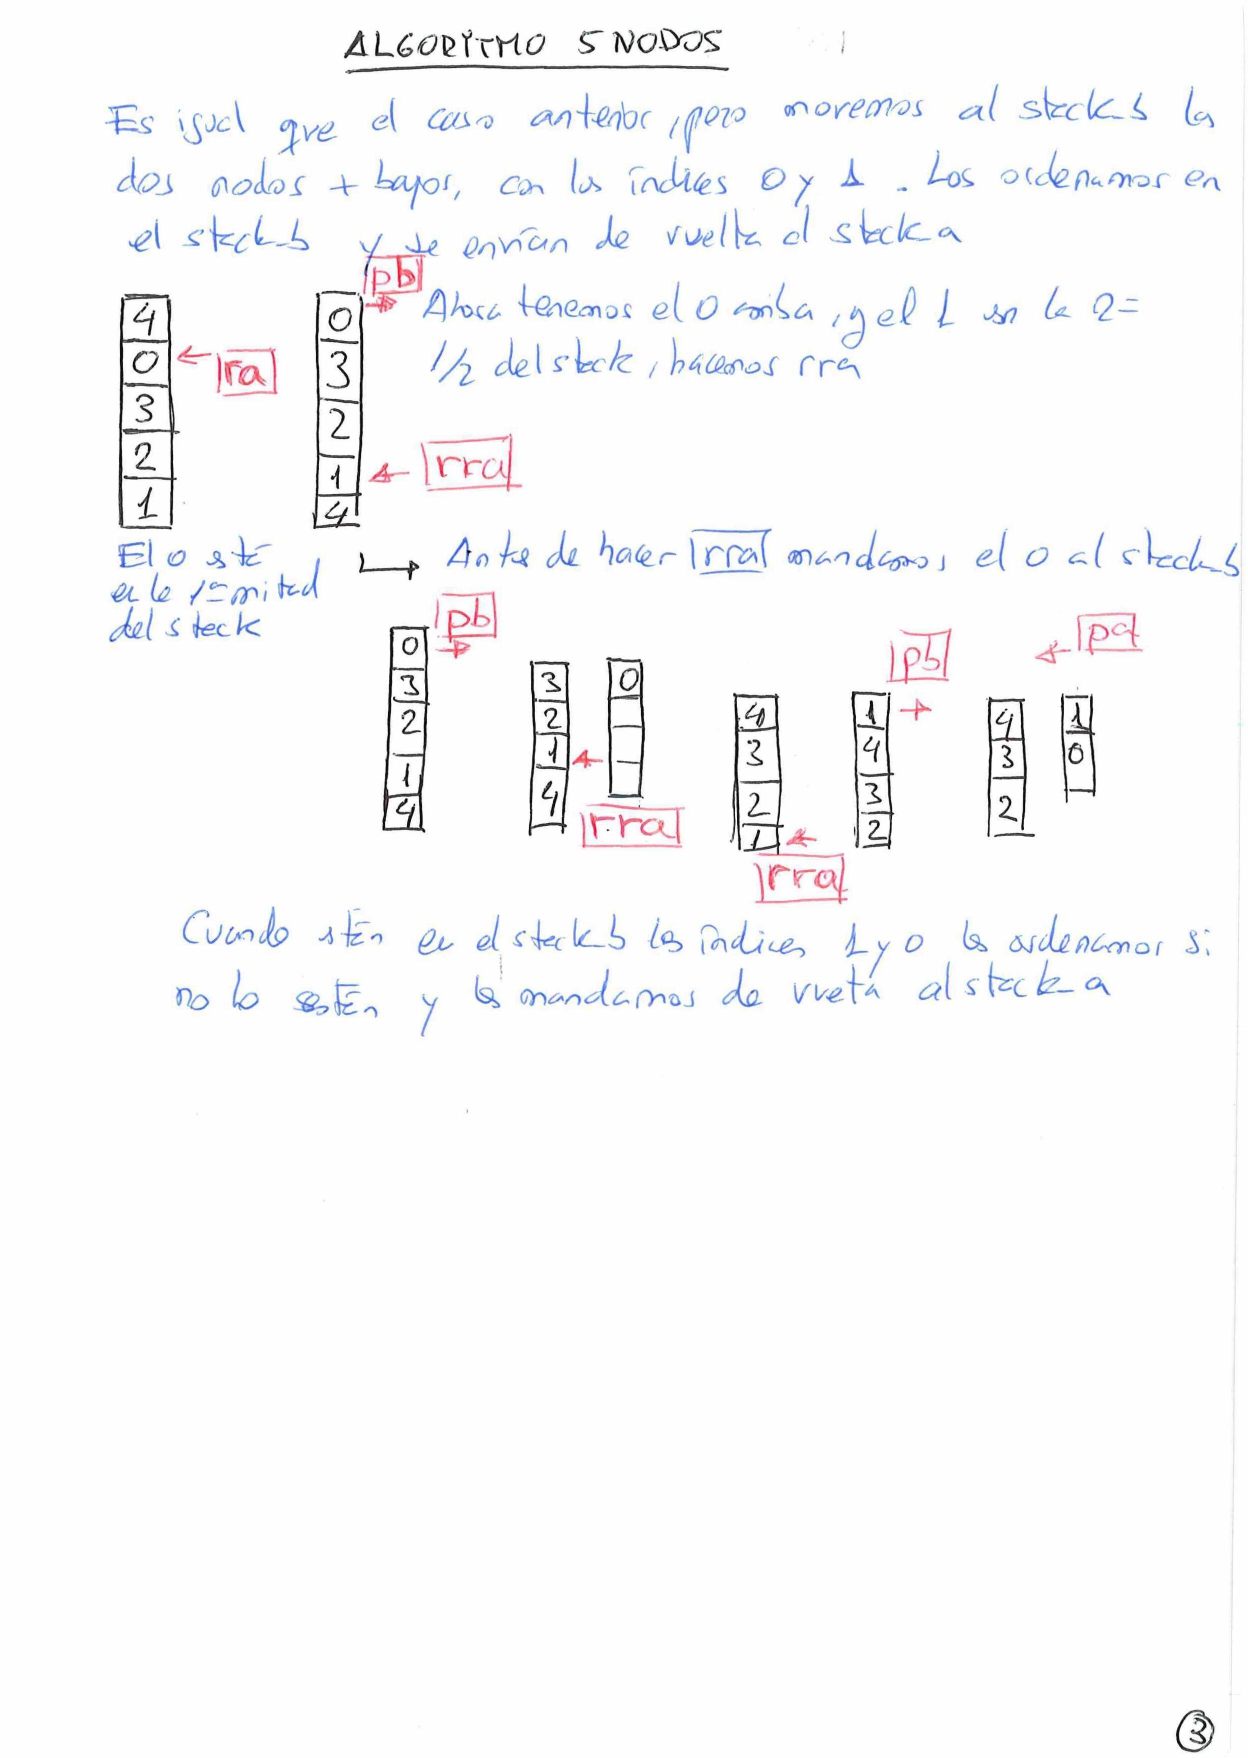 ALGORITMO 5 NODOS
Es igual que el caso anterior, pero movemos al stack b los
dos nodos + bajos, con los índices 0 y 1. Los ordenamos en
el stack b y se envían de vuelta al stack a
pb
4
0
3
2
1
ra
0
3
2
1
4
rra
Ahora tenemos el 0 arriba, y el 1 en la 2ª
1/2 del stack, hacemos rra
El 0 está
en la 1ª mitad
del stack
Antes de hacer rra mandamos el 0 al stack b
pb
0
3
2
1
4
3
2
1
4
0
rra
4
3
2
1
rra
pb
1
4
3
2
pa
4
3
2
1
0
Cuando estén en el stack b los índices 1 y 0 los ordenamos si
no lo están y los mandamos de vueta al stack a
3